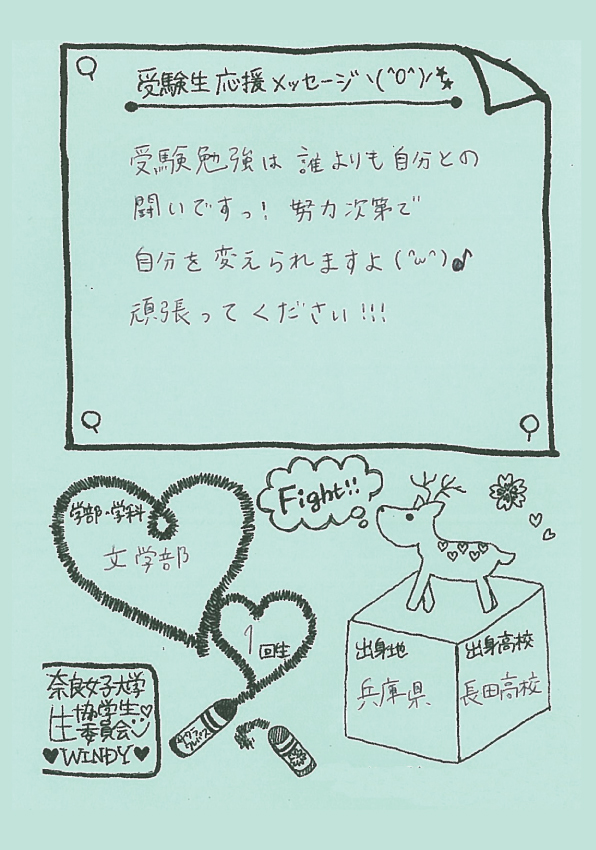 受験生応援メッセージヽ(^O^)ノ
受験勉強は誰よりも自分との
闘いですっ！努力次第で
自分を変えられますよ(^ω^)♪
頑張ってください!!!
Fight!!
学部・学科
文学部
1回生
出身地
兵庫県
出身高校
長田高校
奈良女子大学
生協学生
委員会
♥WINDY♥